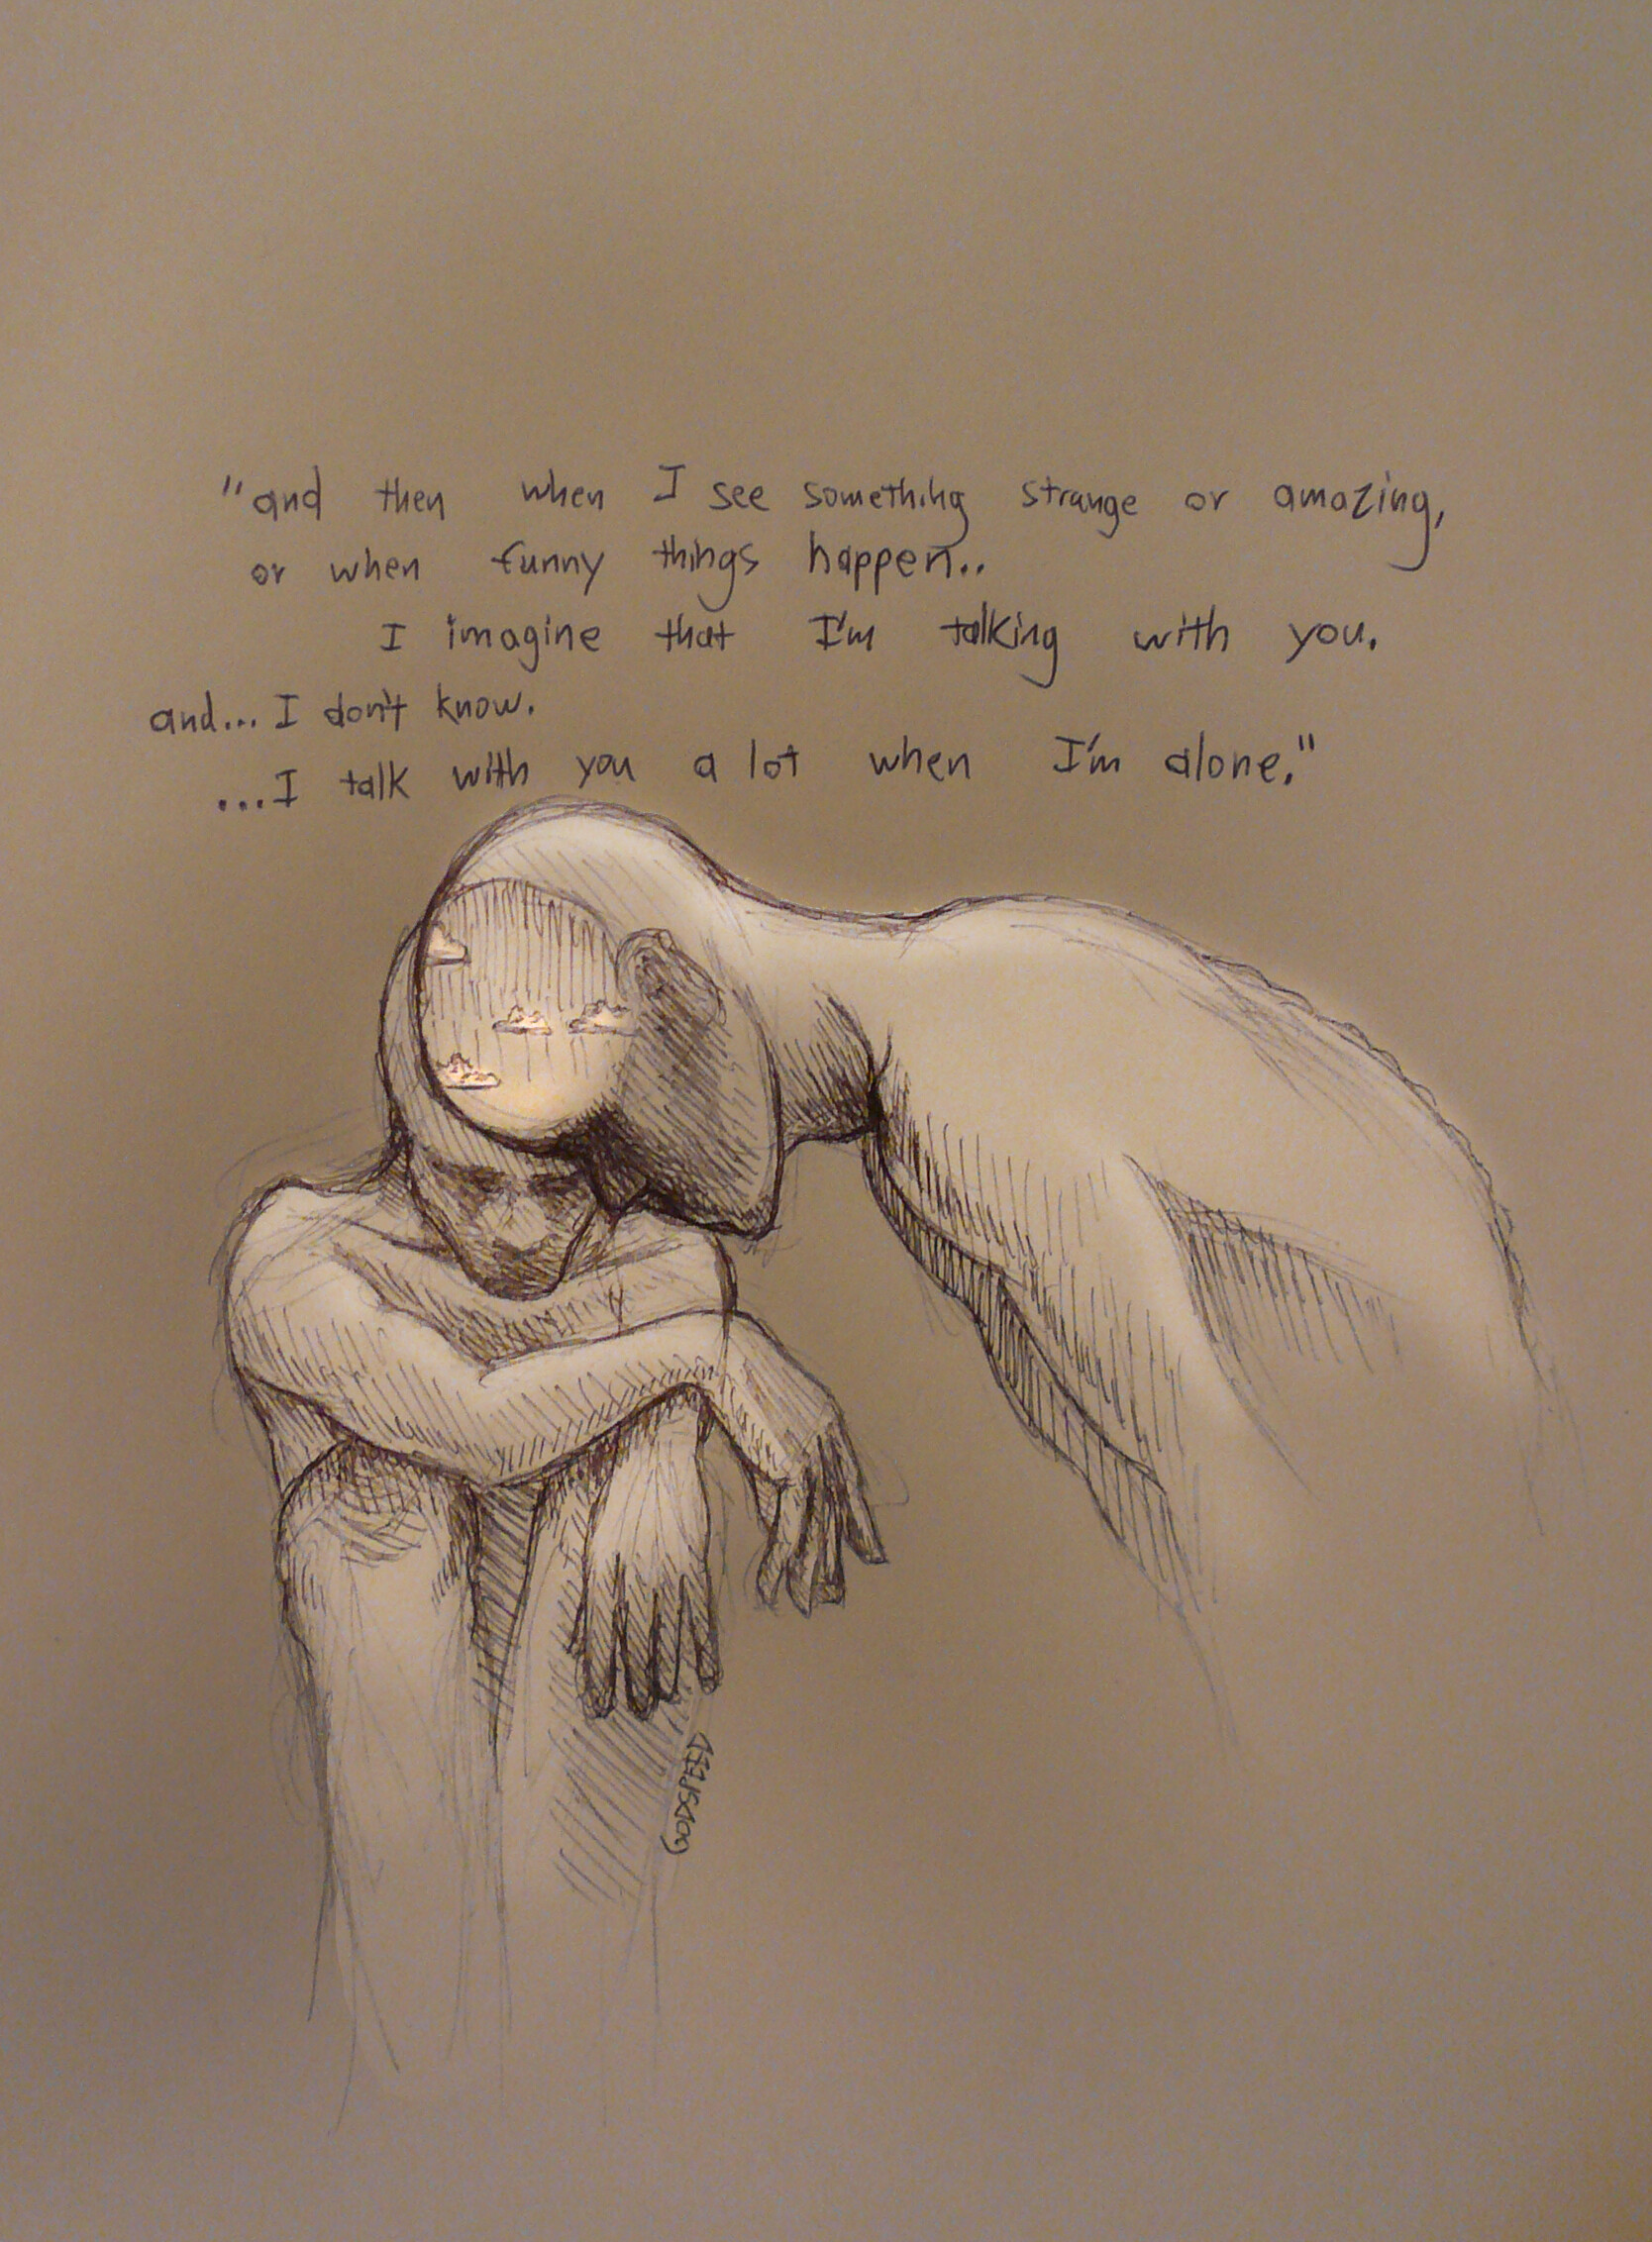 "and then when I see something strange or amazing,
or when funny things happen..
I imagine that I'm talking with you.
and... I don't know.
...I talk with you a lot when I'm alone."